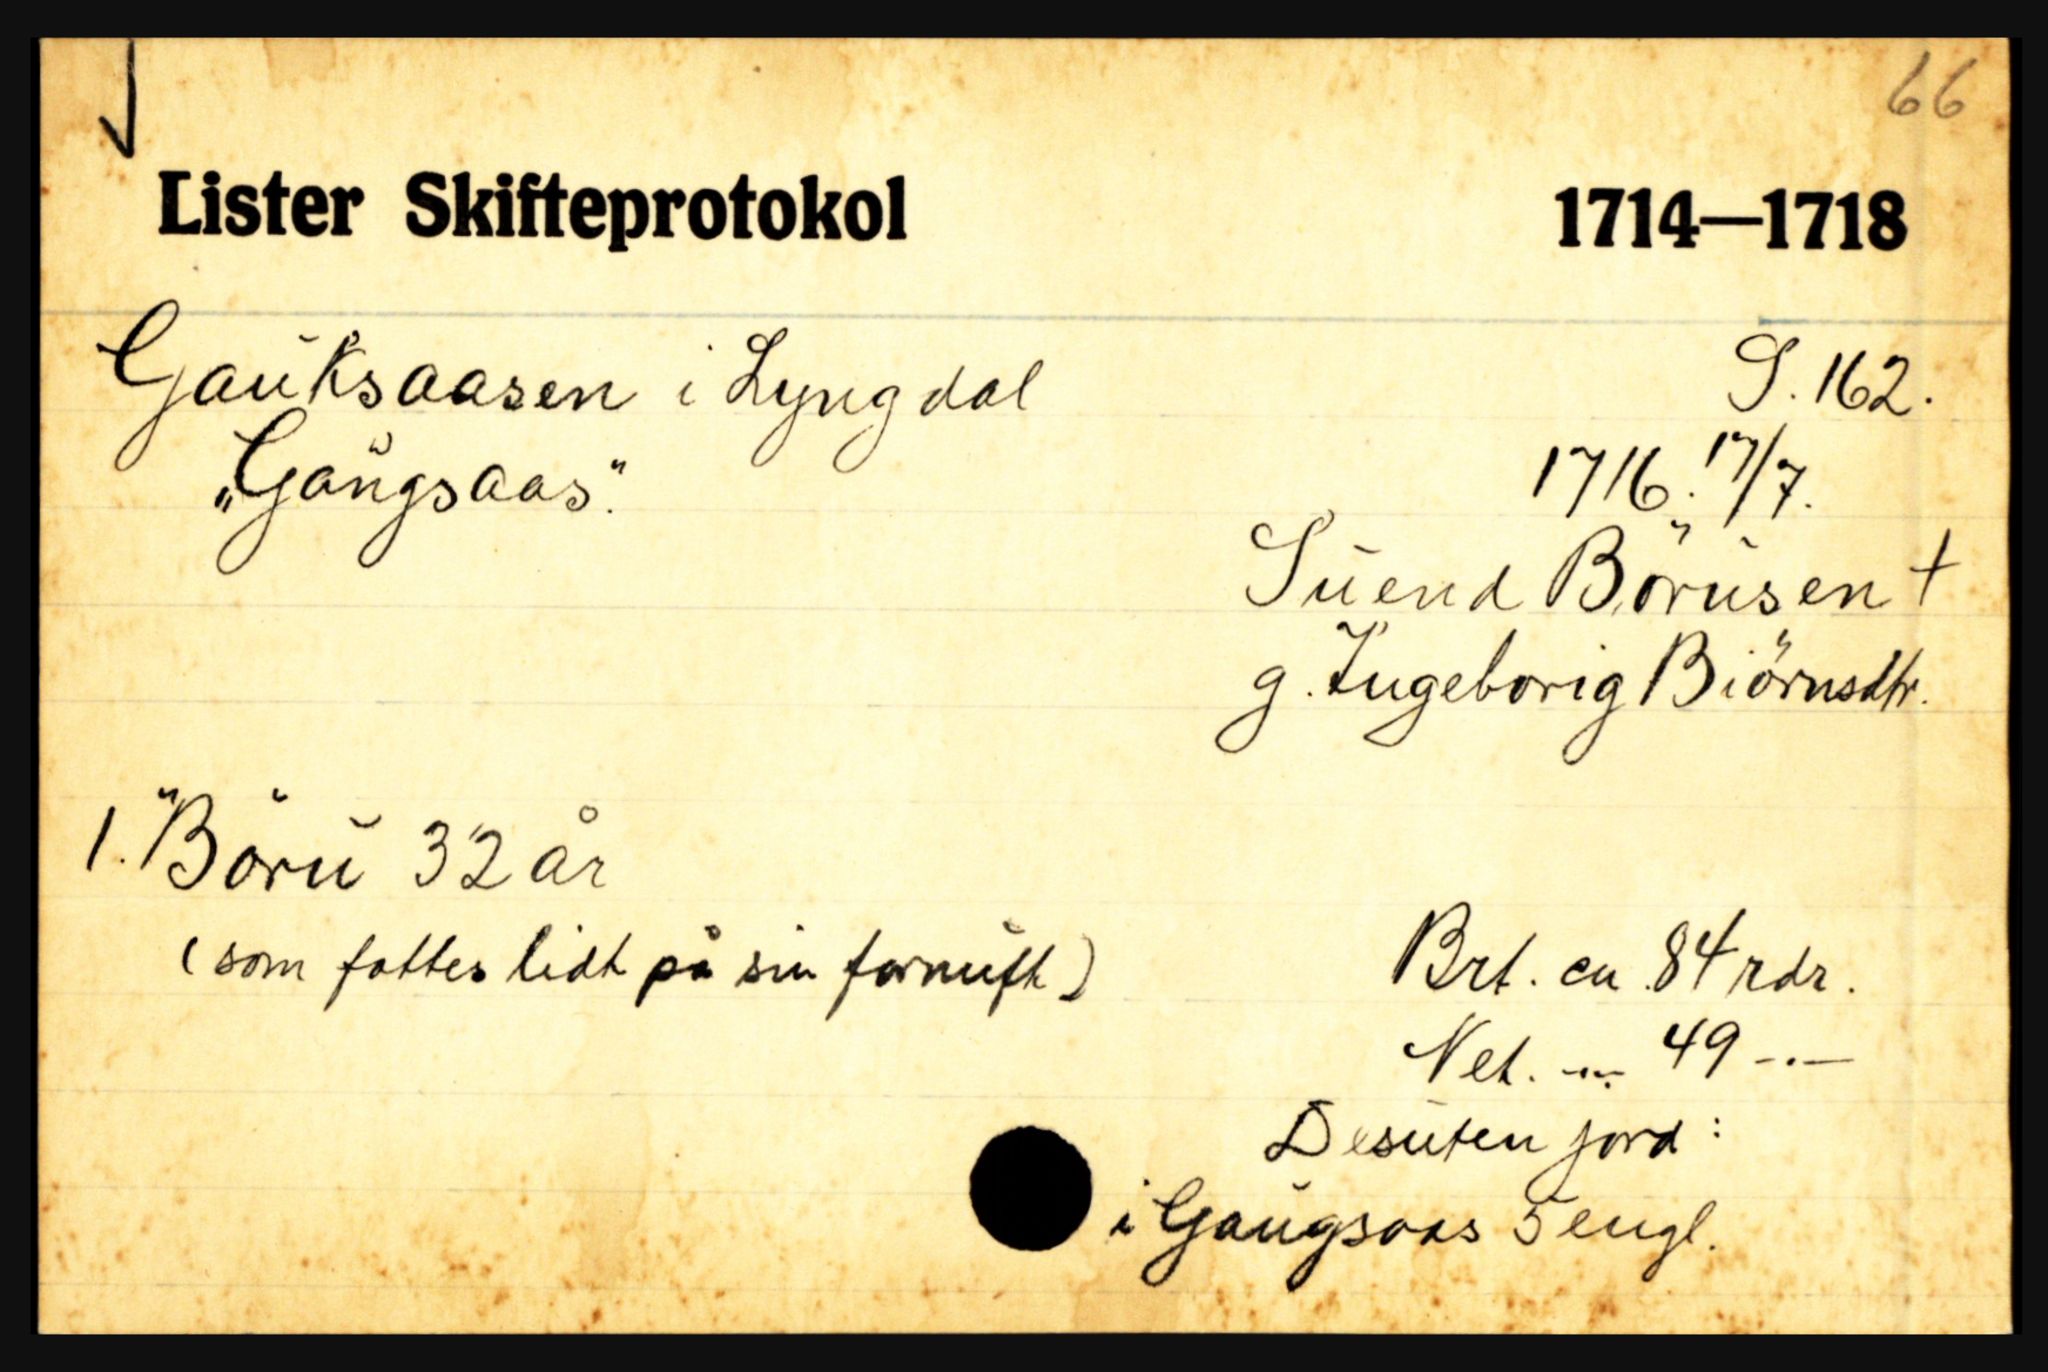 66
Lister Skifteprotokol 1714—1718
Gauksaasen i Lyngdal S. 162.
„Gaugsaas“. 1716. 17/7.
Suend Börusen +
g. Ingeborig Biörnsdtr.
1. "Böru" 32 år
(som fattes lidt på sin fornuft) Brt. ca. 84 rdr.
Net. -.- 49 -.-
Desuten jord:
i Gaugsaas 5 engl.